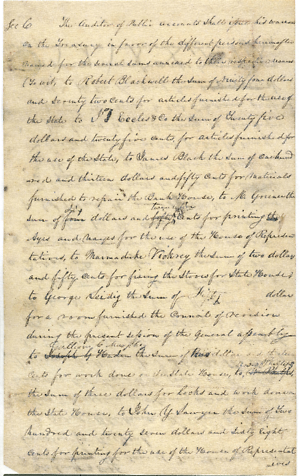 Sec 6 The Auditor of Public accounts shall issue his warrant
on the Treasury in favor of the different persons hereinafter
named for the several sums annexed to their respective names
(to wit, to Robert Blackwell the Sum of Ninety four dollars
and Seventy two Cents for articles furnished for the use of
the State to J T Eccles & Co the Sum of Twenty five
dollars and twenty five cents for articles furnished for
the use of the State, to James Black the Sum of one hund
ered and thirteen dollars and fifty Cents for materials
furnished to repair the Bank House, to M. Greiner the
sum of four dollars and Cents for printing
Ayes and Nayes for the use of the House of Represen
tatives, to Marmaduke Vickrey the Sum of two dollars
and fifty Cents for fixing the Stoves for State House
to George Leidig the Sum of Fifty dollars
for a room furnished the Council of revision
during the present session of the General assembly
to the Sum of dollars
Cents for work done on the State House, to
the Sum of three dollars for locks and work done on
the State House, to John Y Sawyer the Sum of two
hundred and twenty seven dollars and Sixty Eight
Cents for printing for the use of the House of Representat